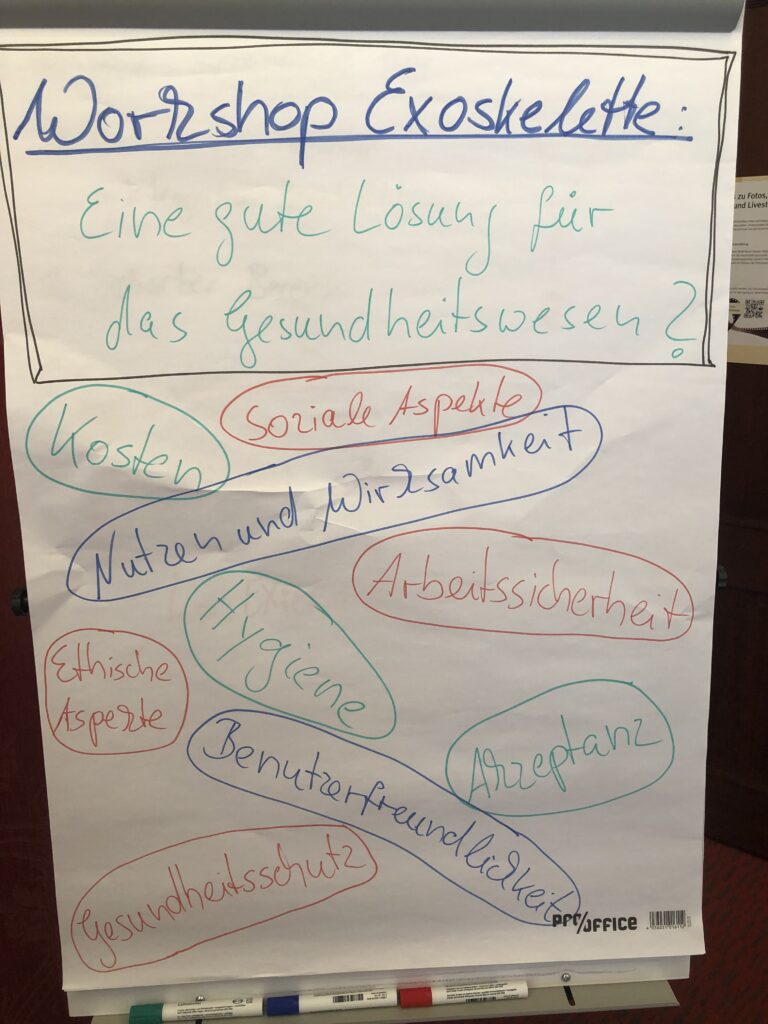 Workshop Exoskelette:
Eine gute Lösung für
das Gesundheitswesen?
Kosten
Soziale Aspekte
Nutzen und Wirksamkeit
Arbeitssicherheit
Hygiene
Ethische
Aspekte
Akzeptanz
Benutzerfreundlichkeit
Gesundheitsschutz
OFFICE
zu Fotos,
und Livest